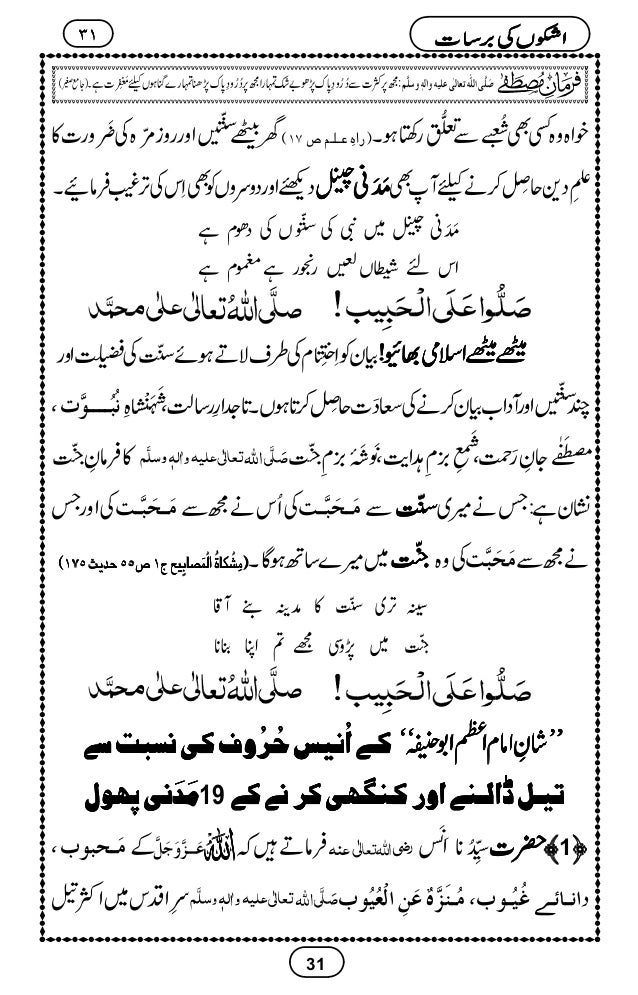 اشکوں کی برسات
۳۱
فرمانِ مُصطَفٰے صَلَّی اللہ تعالیٰ علیہ واٰلہٖ وسلَّم: مجھ پر کثرت سے دُرُودِ پاک پڑھو بے شک تمہارا مجھ پر دُرُودِ پاک پڑھنا تمہارے گناہوں کیلئے مغفِرت ہے۔ (جامع صغیر)
خواہ وہ کسی بھی شُعبے سے تعلُّق رکھتا ہو۔ (راہِ علم ص ۱۷) گھر بیٹھے سنّتیں اور روز مرّہ کی ضَرورت کا
علمِ دین حاصِل کرنے کیلئے آپ بھی مَدَنی چینل دیکھئے اور دوسروں کو بھی اِس کی ترغیب فرمائیے۔
مَدَنی چینل میں نبی کی سنّتوں کی دھوم ہے
اس لئے شیطاں لعیں رنجور ہے مغموم ہے
صَلُّوا عَلَی الْحَبِیب! صلَّی اللہُ تعالیٰ علیٰ محمَّد
میٹھے میٹھے اسلامی بھائیو! بیان کو اِختِتام کی طرف لاتے ہوئے سنّت کی فضیلت اور
چند سنّتیں اور آداب بیان کرنے کی سعادت حاصِل کرتا ہوں۔ تاجدارِ رسالت، شَہَنشاہِ نُبُوَّت،
مصطَفٰے جانِ رَحمت، شَمعِ بزمِ ہدایت، نَوشَۂ بزمِ جنّت صَلَّی اللہ تعالیٰ علیہ واٰلہٖ وسلَّم کا فرمانِ جنّت
نشان ہے: جس نے میری سنّت سے مَحَبَّت کی اُس نے مجھ سے مَحَبَّت کی اور جس
نے مجھ سے مَحَبَّت کی وہ جنّت میں میرے ساتھ ہوگا۔ (مِشکاۃُ الْمَصابِیح ج۱ ص۵۵ حدیث ۱۷۵)
سینہ تری سنّت کا مدینہ بنے آقا
جنّت میں پڑوسی مجھے تم اپنا بنانا
صَلُّوا عَلَی الْحَبِیب! صلَّی اللہُ تعالیٰ علیٰ محمَّد
”شانِ امام اعظم ابو حنیفہ“ کے اُنیس حُرُوف کی نسبت سے
تیل ڈالنے اور کنگھی کرنے کے 19 مَدَنی پھول
﴿1﴾ حضرت سیِّدُنا اَنَس رضی اللہ تعالیٰ عنہ فرماتے ہیں کہ اللہ عَزَّوَجَلَّ کے مَحبوب،
دانائے غُیُوب، مُنَزَّہٌ عَنِ الْعُیُوب صَلَّی اللہ تعالیٰ علیہ واٰلہٖ وسلَّم سرِ اقدس میں اکثر تیل
31